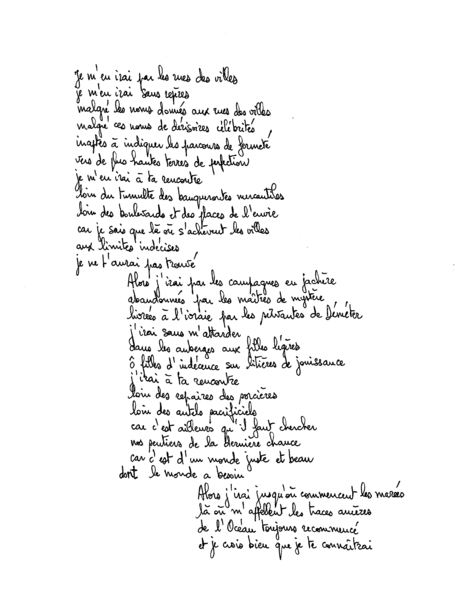 Je m'en irai par les rues des villes
je m'en irai sans repères
malgré les noms donnés aux rues des villes
malgré ces noms de dérisoires célébrités
inaptes à indiquer les parcours de fermeté
vers de plus hautes terres de perfection
je m'en irai à ta rencontre
loin du tumulte des banqueroutes mercantiles
loin des boulevards et des places de l'envie
car je sais que là où s'achèvent les villes
aux limites indécises
je ne t'aurai pas trouvé
Alors j'irai par les campagnes en jachère
abandonnées par les maîtres de mystère
livrées à l'ivraie par les servantes de Déméter
j'irai sans m'attarder
dans les auberges aux filles légères
ô filles d'indécence sur litières de jouissance
j'irai à ta rencontre
loin des repaires des sorcières
loin des autels sacrificiels
car c'est ailleurs qu'il faut chercher
nos sentiers de la dernière chance
car c'est d'un monde juste et beau
dont le monde a besoin
Alors j'irai jusqu'où commencent les marées
là où m'appellent les traces amères
de l'Océan toujours recommencé
et je crois bien que je te connaîtrai